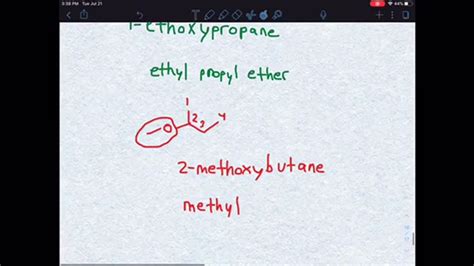 3:38 PM Tue Jul 21
44%
1-ethoxypropane
ethyl propyl ether
1
2 3 4
O
2-methoxybutane
methyl